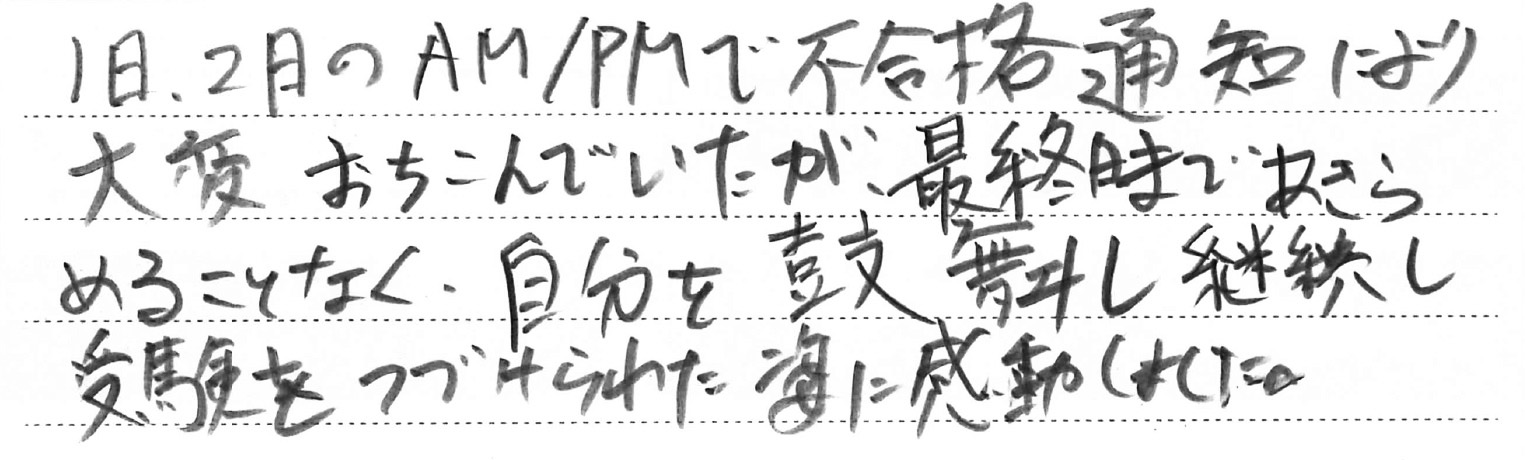 1日、2日のAM/PMで不合格通知により
大変おちこんでいたが、最終時まであきら
めることなく、自分を鼓舞し継続し
受験をつづけられた姿に感動しました。